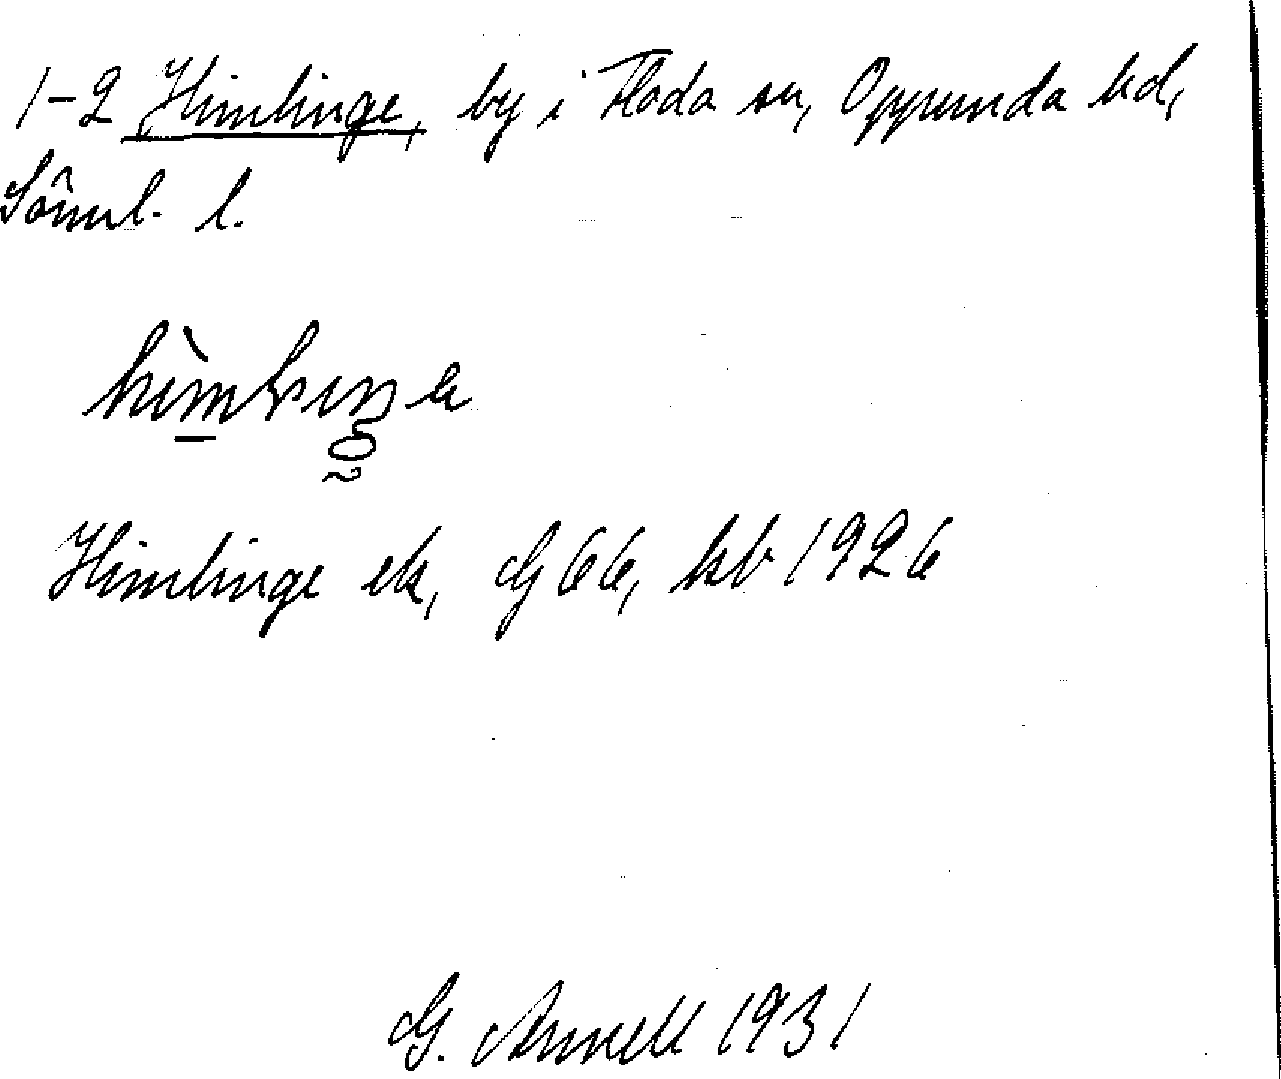 1-2 Himlinge, by i Floda sn, Oppunda hd,
Söml. l.
Himlinge ek, G 66, kb 1926
G. Annell 1931